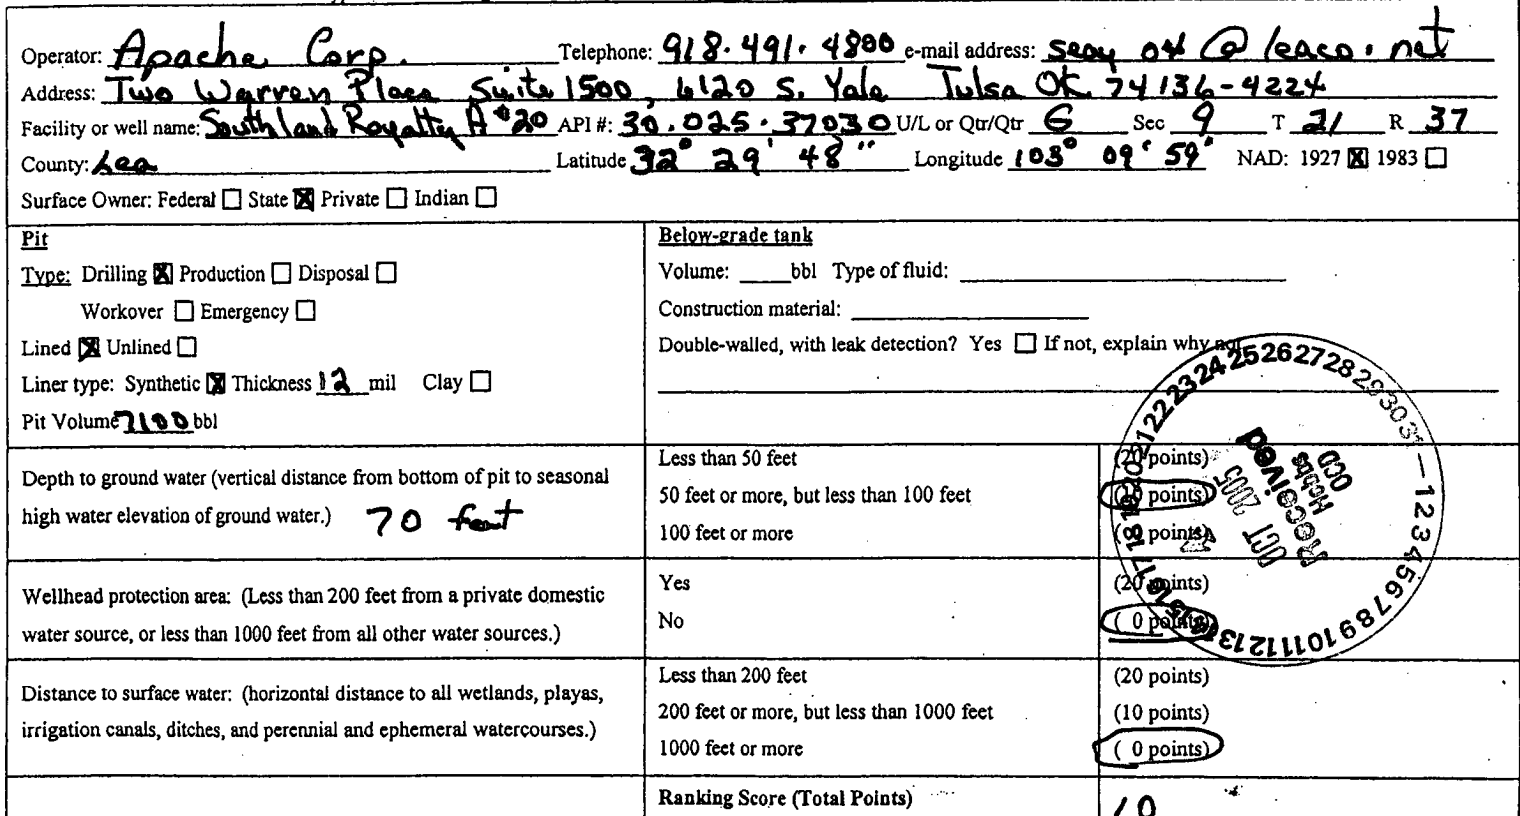 Operator: Apache Corp. Telephone: 918.491.4800 e-mail address: seay 04 @ leaco.net
Address: Two Warren Place Suite 1500, 6120 S. Yale Tulsa OK 74136-4224
Facility or well name: Southland Royalty A #20 API #: 30.025.37030 U/L or Qtr/Qtr G Sec 9 T 21 R 37
County: Lea Latitude 32° 29' 48" Longitude 103° 09' 59" NAD: 1927 ☒ 1983 ☐
Surface Owner: Federal ☐ State ☒ Private ☐ Indian ☐
Pit
Type: Drilling ☒ Production ☐ Disposal ☐
Workover ☐ Emergency ☐
Lined ☒ Unlined ☐
Liner type: Synthetic ☒ Thickness 12 mil Clay ☐
Pit Volume 7100 bbl
Below-grade tank
Volume: ____bbl Type of fluid: ____
Construction material: ____
Double-walled, with leak detection? Yes ☐ If not, explain why not
Depth to ground water (vertical distance from bottom of pit to seasonal
high water elevation of ground water.) 70 feet
Less than 50 feet (20 points)
50 feet or more, but less than 100 feet (10 points)
100 feet or more (0 points)
Wellhead protection area: (Less than 200 feet from a private domestic
water source, or less than 1000 feet from all other water sources.)
Yes (20 points)
No ( 0 points)
Distance to surface water: (horizontal distance to all wetlands, playas,
irrigation canals, ditches, and perennial and ephemeral watercourses.)
Less than 200 feet (20 points)
200 feet or more, but less than 1000 feet (10 points)
1000 feet or more ( 0 points)
Ranking Score (Total Points) 10
OCT 2005
Received
Hobbs
OCD
1 2 3 4 5 6 7 8 9 10 11 12 13 14 15 16 17 18 19 20 21 22 23 24 25 26 27 28 29 30 31